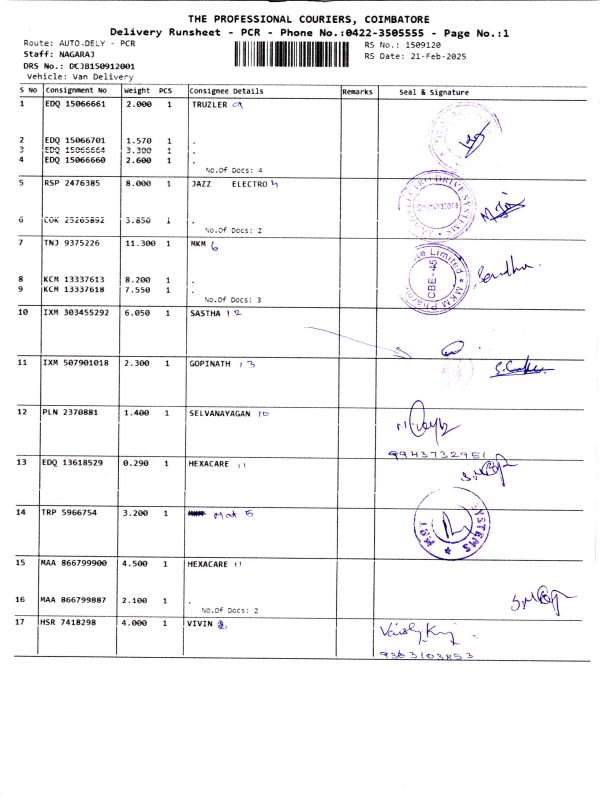 THE PROFESSIONAL COURIERS, COIMBATORE
Delivery Runsheet - PCR - Phone No.:0422-3505555 - Page No.:1
Route: AUTO-DELY - PCR
RS No.: 1509120
Staff: NAGARAJ
RS Date: 21-Feb-2025
DRS No.: DCJB150912001
Vehicle: Van Delivery
S No Consignment No Weight PCS Consignee Details Remarks Seal & Signature
1 EDQ 15066661 2.000 1 TRUZLER 9
2 EDQ 15066701 1.570 1 .
3 EDQ 15066664 3.300 1 .
4 EDQ 15066660 2.600 1 .
No.Of Docs: 4
5 RSP 2476385 8.000 1 JAZZ ELECTRO 4
6 COK 25265892 3.850 1 .
No.Of Docs: 2
7 TNJ 9375226 11.300 1 MKM 6
8 KCM 13337613 8.200 1 .
9 KCM 13337618 7.550 1 .
No.Of Docs: 3
CBE-45
10 IXM 303455292 6.050 1 SASTHA 12
11 IXM 507901018 2.300 1 GOPINATH 13
12 PLN 2370881 1.400 1 SELVANAYAGAN 10
9943732951
13 EDQ 13618529 0.290 1 HEXACARE 11
14 TRP 5966754 3.200 1 Mat 5
MAT SYSTEMS
15 MAA 866799900 4.500 1 HEXACARE 11
16 MAA 866799887 2.100 1 .
No.Of Docs: 2
17 HSR 7418298 4.000 1 VIVIN
9363103853